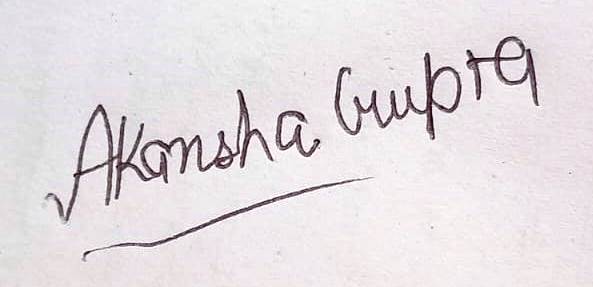 Akansha Gupta